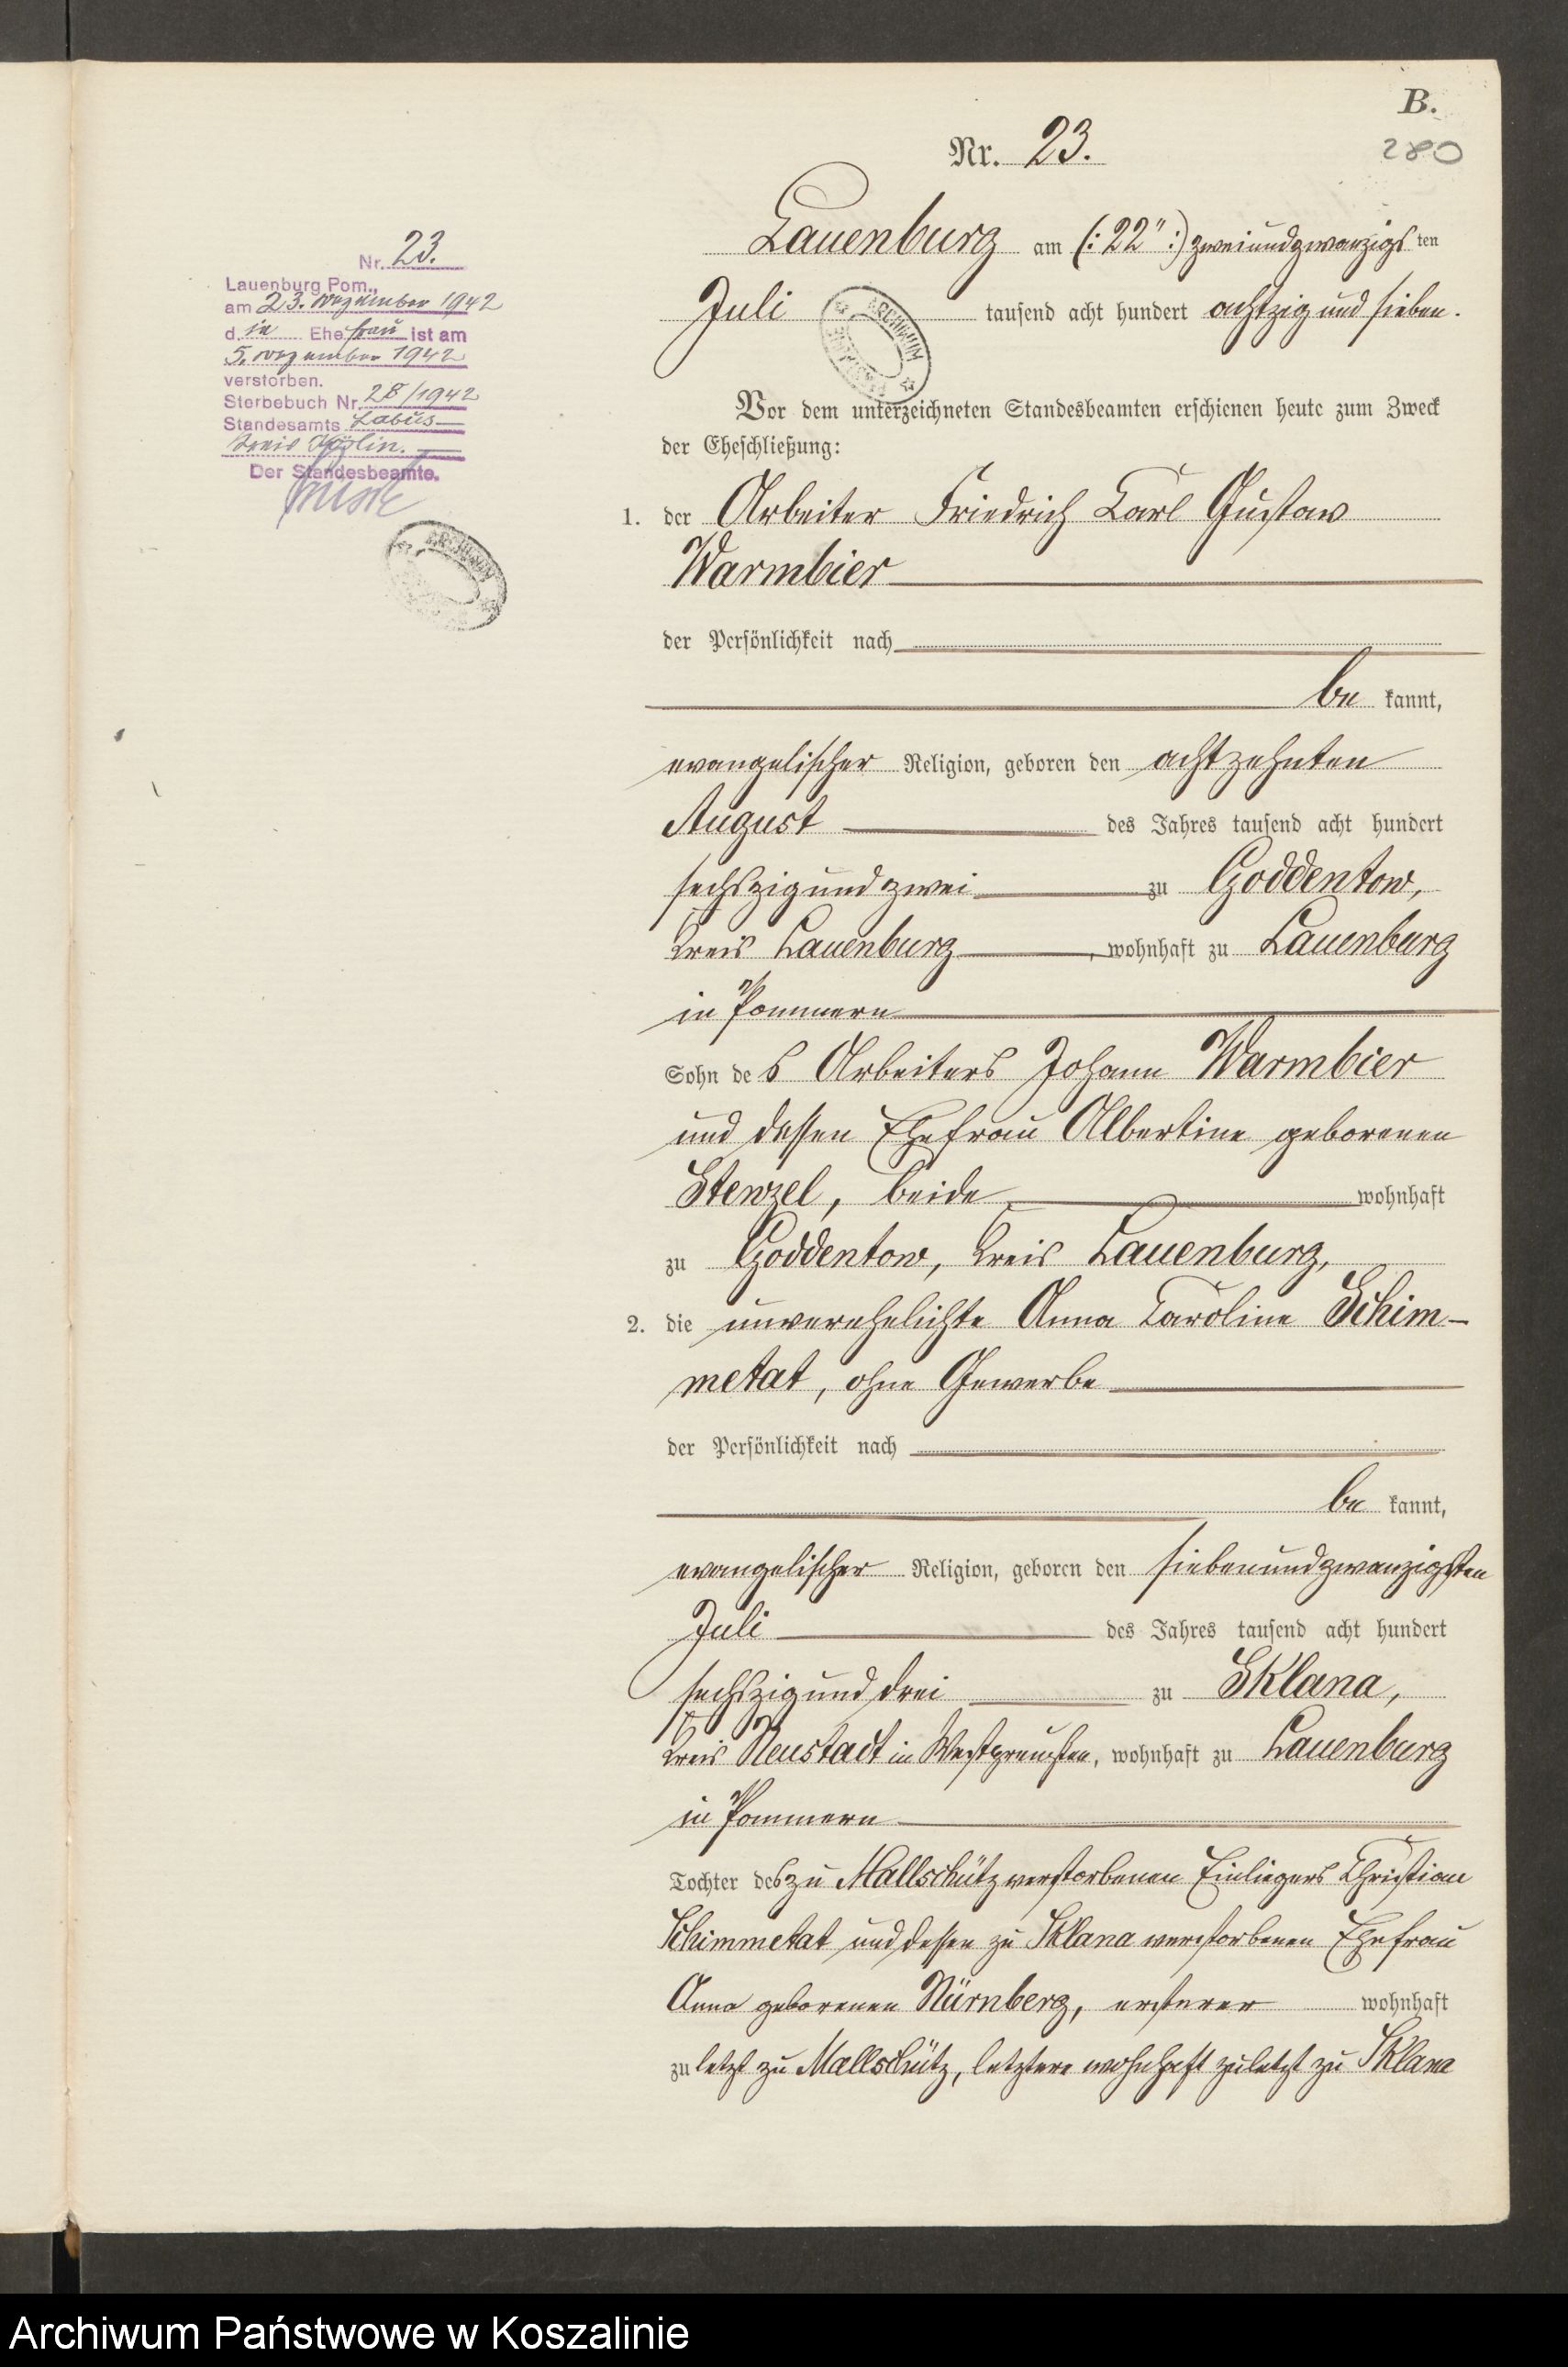 B.
280
Nr. 23.
Lauenburg am (: 22ten :) zweiundzwanzigsten
Juli tausend acht hundert achtzig und sieben.
Vor dem unterzeichneten Standesbeamten erschienen heute zum Zweck
der Eheschließung:
1. der Arbeiter Friedrich Carl Gustav
Warmbier
der Persönlichkeit nach
be kannt,
evangelischer Religion, geboren den achtzehnten
August des Jahres tausend acht hundert
sechszig und zwei zu Goddentow,
Kreis Lauenburg, wohnhaft zu Lauenburg
in Pommern
Sohn des Arbeiters Johann Warmbier
und dessen Ehefrau Albertine geborenen
Stenzel, beide wohnhaft
zu Goddentow, Kreis Lauenburg,
2. die unverehelichte Anna Caroline Schim-
metat, ohne Gewerbe
der Persönlichkeit nach
be kannt,
evangelischer Religion, geboren den siebenundzwanzigsten
Juli des Jahres tausend acht hundert
sechszig und drei zu Sklana,
Kreis Neustadt in Westpreußen, wohnhaft zu Lauenburg
in Pommern
Tochter des zu Mallschütz verstorbenen Einliegers Christian
Schimmetat und dessen zu Sklana verstorbenen Ehefrau
Anna geborenen Nürnberg, ersterer wohnhaft
zuletzt zu Mallschütz, letztere wohnhaft zuletzt zu Sklana
Nr. 23.
Lauenburg Pom.,
am 23. Dezember 1942
d. ie Ehefrau ist am
5. Dezember 1942
verstorben.
Sterbebuch Nr. 28/1942
Standesamts Labus
Kreis Köslin.
Der Standesbeamte.
ARCHIWUM
ARCHIWUM
Archiwum Państwowe w Koszalinie